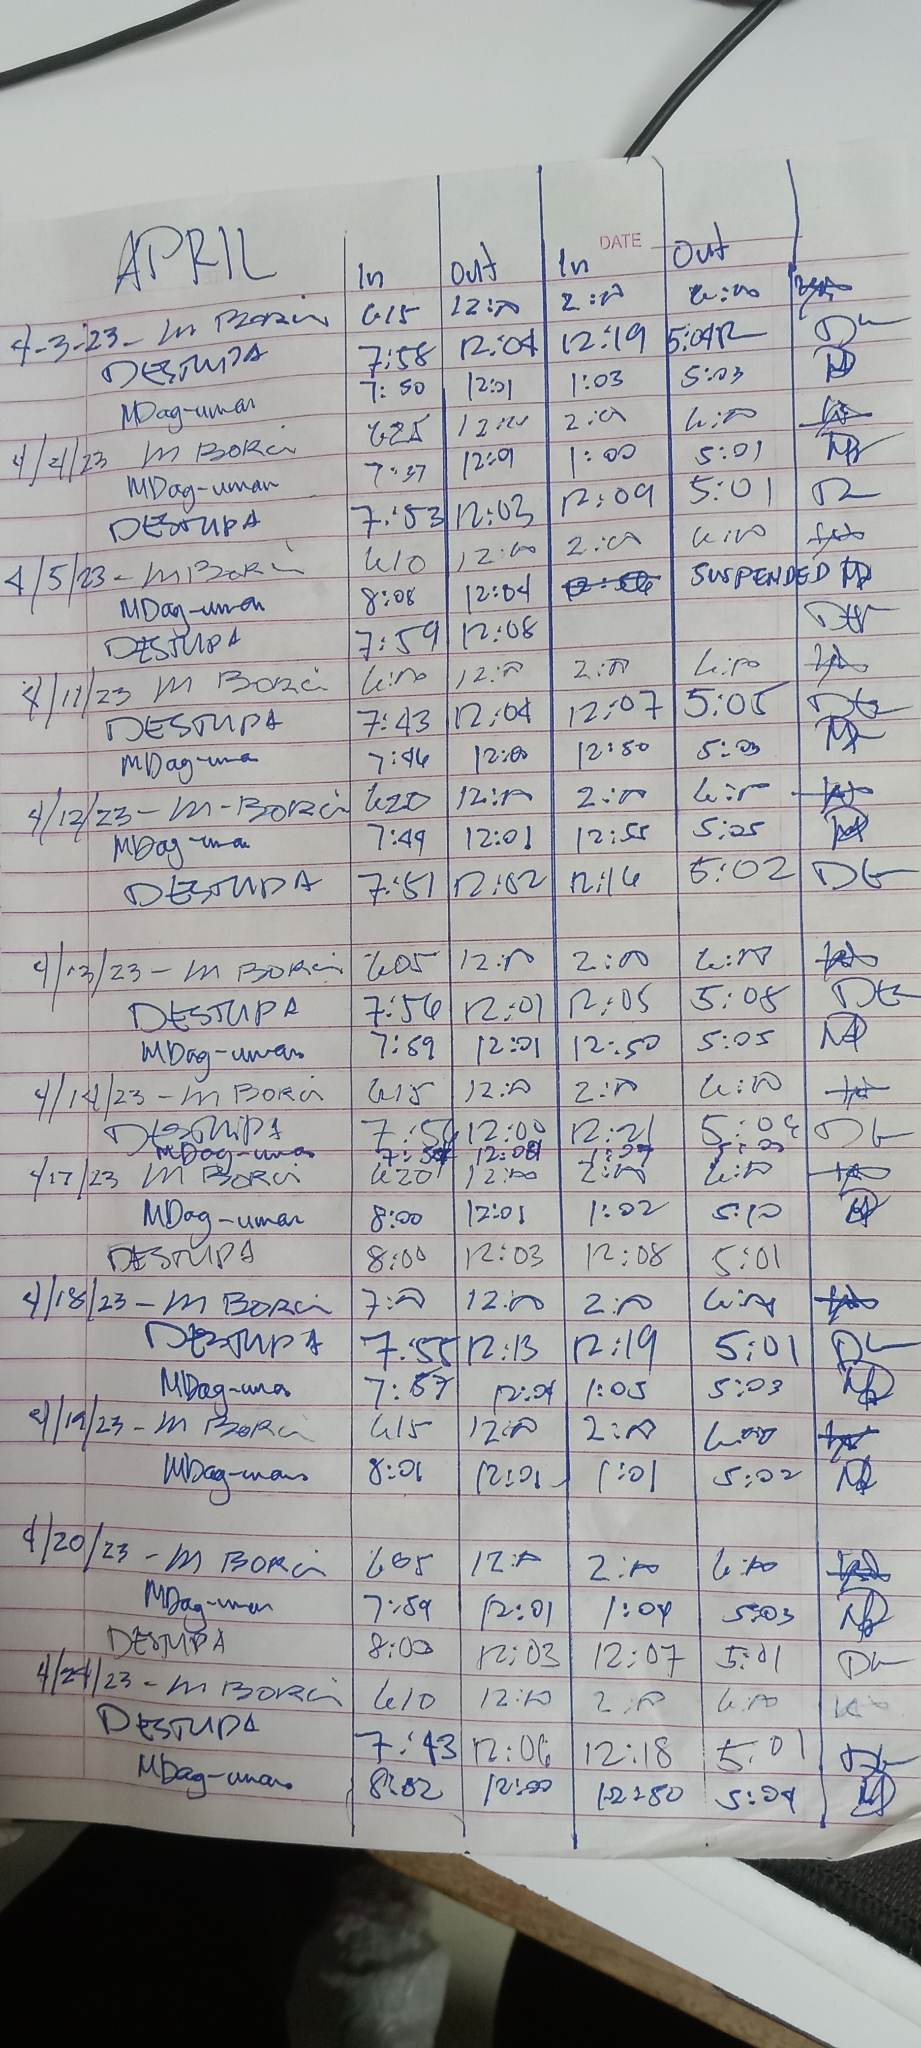 APRIL In Out In DATE Out
4-3-23- M Borci 615 12:00 2:00 6:00
DESTUPA 7:58 12:04 12:19 5:04
MDag-uman 7:50 12:01 1:03 5:03
4/4/23 M Borci 625 12:00 2:00 6:00
MDag-uman 7:37 12:01 1:00 5:01
DESTUPA 7:53 12:03 12:09 5:01
4/5/23- M Borci 610 12:00 2:00 6:00
MDag-uman 8:08 12:04 SUSPENDED
DESTUPA 7:59 12:08
4/11/23 M Borci 6:00 12:00 2:00 6:00
DESTUPA 7:43 12:04 12:07 5:05
MDag-uma 7:46 12:00 12:50 5:03
4/12/23- M-Borci 620 12:00 2:00 6:00
MDag-uman 7:49 12:01 12:55 5:05
DESTUPA 7:51 12:02 12:16 5:02
4/13/23- M Borci 605 12:00 2:00 6:00
DESTUPA 7:56 12:01 12:05 5:08
MDag-uman 7:59 12:01 12:50 5:05
4/14/23- M Borci 615 12:00 2:00 6:00
DESTUPA 12:00 12:21 5:04
MDag-uman
4/17/23 M Borci 620 12:00 2:00 6:00
MDag-uman 8:00 12:01 1:02 5:10
DESTUPA 8:00 12:03 12:08 5:01
4/18/23- M Borci 7:00 12:00 2:00 6:00
DESTUPA 7:55 12:13 12:19 5:01
MDag-uman 7:57 12:01 1:05 5:03
4/19/23- M Borci 615 12:00 2:00 6:00
MDag-uman 8:01 12:01 1:01 5:02
4/20/23- M Borci 605 12:00 2:00 6:00
MDag-uman 7:59 12:01 1:04 5:03
DESTUPA 8:00 12:03 12:07 5:01
4/24/23- M Borci 610 12:00 2:00 6:00
DESTUPA 7:43 12:06 12:18 5:01
MDag-uman 8:02 12:00 12:50 5:04